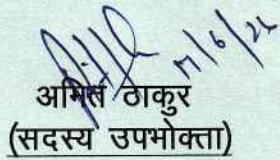 11/6/26
अमित ठाकुर
(सदस्य उपभोक्ता)